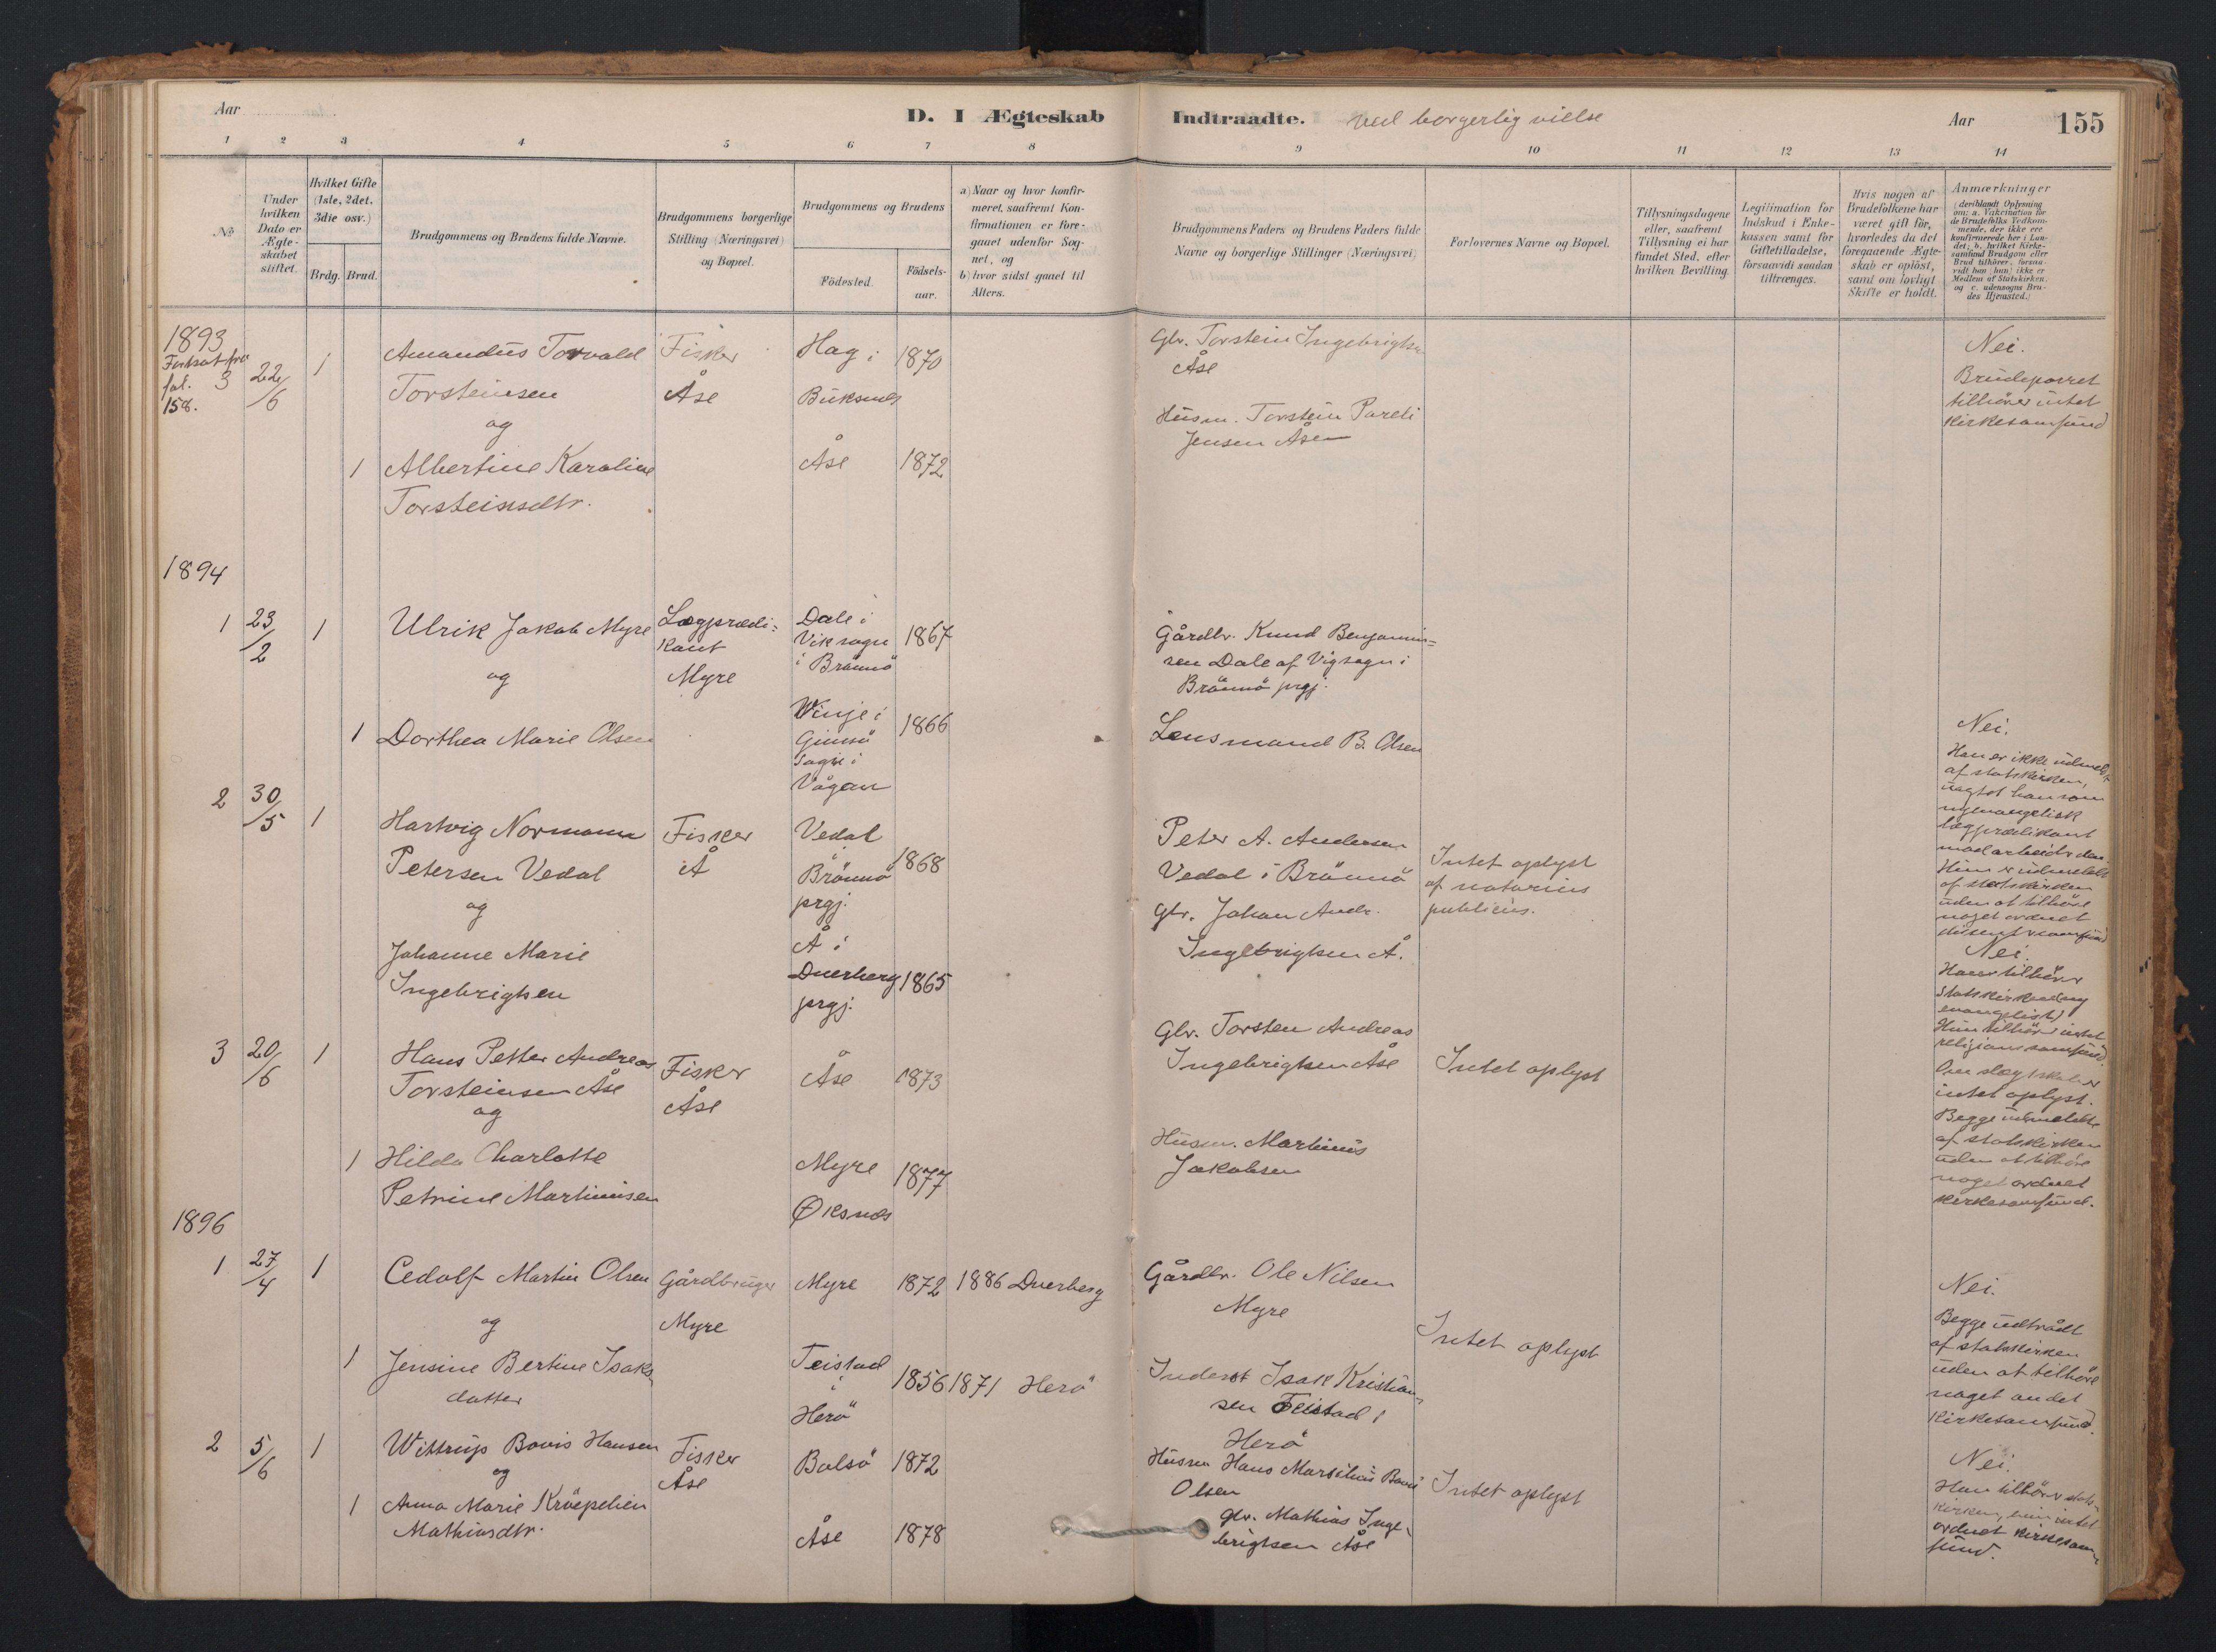 Aar
D. I Ægteskab Indtraadte. ved borgerlig vielse
Aar 155
1 2 3 4 5 6 7 8 9 10 11 12 13 14
No
Under
hvilken
Dato er
Ægte-
skabet
stiftet.
Hvilket Gifte
(1ste, 2det.
3die osv.)
Brdg. Brud.
Brudgommens og Brudens fulde Navne.
Brudgommens borgerlige
Stilling (Næringsvei)
og Bopæl.
Brudgommens og Brudens
Födested.
Födsels-
aar.
a) Naar og hvor konfir-
meret, saafremt Kon-
firmationen er fore-
gaaet udenfor Sog-
net, og
b) hvor sidst gaaet til
Alters.
Brudgommens Faders og Brudens Faders fulde
Navne og borgerlige Stillinger (Næringsvei)
Forlovernes Navne og Bopæl.
Tillysningsdagene
eller, saafremt
Tillysning ei har
fundet Sted, efter
hvilken Bevilling.
Legitimation for
Indskud i Enke-
kassen samt for
Giftetilladelse,
forsaavidt saadan
tiltrænges.
Hvis nogen af
Brudefolkene har
været gift før,
hvorledes da det
foregaaende Ægte-
skab er oplöst,
samt om lovligt
Skifte er holdt.
Anmærkninger
(deriblandt Oplysning
om: a. Vakcination for
de Brudefolks Vedkom-
mende, der ikke ere
konfirmerede her i Lan-
det; b. hvilket Kirke-
samfund Brudgom eller
Brud tilhörer, forsaa-
vidt han (hun) ikke er
Medlem af Statskirken,
og c. udensogns Bru-
des Hjemsted.)
1893
Fortsat fra
fol. 3
158.
22/6
1
Amandus Torvald
Torsteinsen
og
1 Albertine Karoline
Torsteinsdtr.
Fisker
Åse
Hag i
Buksnes
1870
Åse 1872
Gbr. Torstein Ingebrigtsen
Åse
Husm. Torstein Pareli
Jensen Åsen
Nei.
Brudeparret
tilhører intet
kirkesamfund
1894
1 23/2 1
Ulrik Jakob Myre
og
1 Dorthea Marie Olsen
Lægprædi-
kant
Myre
Dale i
Vik sogn
i Brönnö
1867
Winje i
Gimsö
Sogn i
Vågan
1866
Gårdbr. Knud Benjamin-
sen Dale af Vigsogn i
Brönnö prgj.
Lensmand B. Olsen
Nei.
Han er ikke udmeldt
af statskirken,
uagtet han som
nyevangelisk
lægprædikant
modarbeider den.
Hun er udmeldt
af statskirken
uden at tilhöre
noget ordnet
dissentersamfund
2 30/5 1
Hartvig Normann
Petersen Vedal
og
Johanne Marie
Ingebrigtsen
Fisker
Å
Vedal
i
Brönnö
prgj.
1868
Å i
Dverberg
prgj.
1865
Peter A. Andersen
Vedal i Brönnö
Gbr. Johan Andr.
Ingebrigtsen Å.
Intet oplyst
af notarius
publicus.
Nei.
Han tilhörer
statskirken (ny
evangelist)
Hun tilhörer intet
religionssamfund.
3 20/6 1
Hans Petter Andreas
Torsteinsen Åse
og
1 Hilda Charlotte
Petrine Martinusen
Fisker
Åse
Åse 1873
Myre
Øksnes
1877
Gbr. Torsten Andreas
Ingebrigtsen Åse
Husm. Martinus
Jakobsen
Intet oplyst
Om slægtskab er
intet oplyst.
Begge udmeldte
af statskirken
uden at tilhöre
noget ordnet
kirkesamfund.
1896
1 27/4 1
Cedolf Martin Olsen
og
1 Jensine Bertine Isaks-
datter
Gårdbruger
Myre
Myre 1872 1886 Dverberg
Teistad
i
Herö
1856 1871 Herö
Gårdbr. Ole Nilsen
Myre
Inderst Isak Kristian-
sen Teistad i
Herö
Intet oplyst
Nei.
Begge udtrådt
af statskirken
uden at tilhöre
noget andet
kirkesamfund.
2 5/6 1
Wittrup Bovis Hansen
og
1 Anna Marie Kröepelien
Mathiasdtr.
Fisker
Åse
Bolsö 1872
Åse 1878
Husm Hans Marselius Bovis
Olsen
gbr. Mathias Inge-
brigtsen Åse
Intet oplyst
Nei.
Han tilhörer stats-
kirken, hun intet
ordnet kirkesam-
fund.